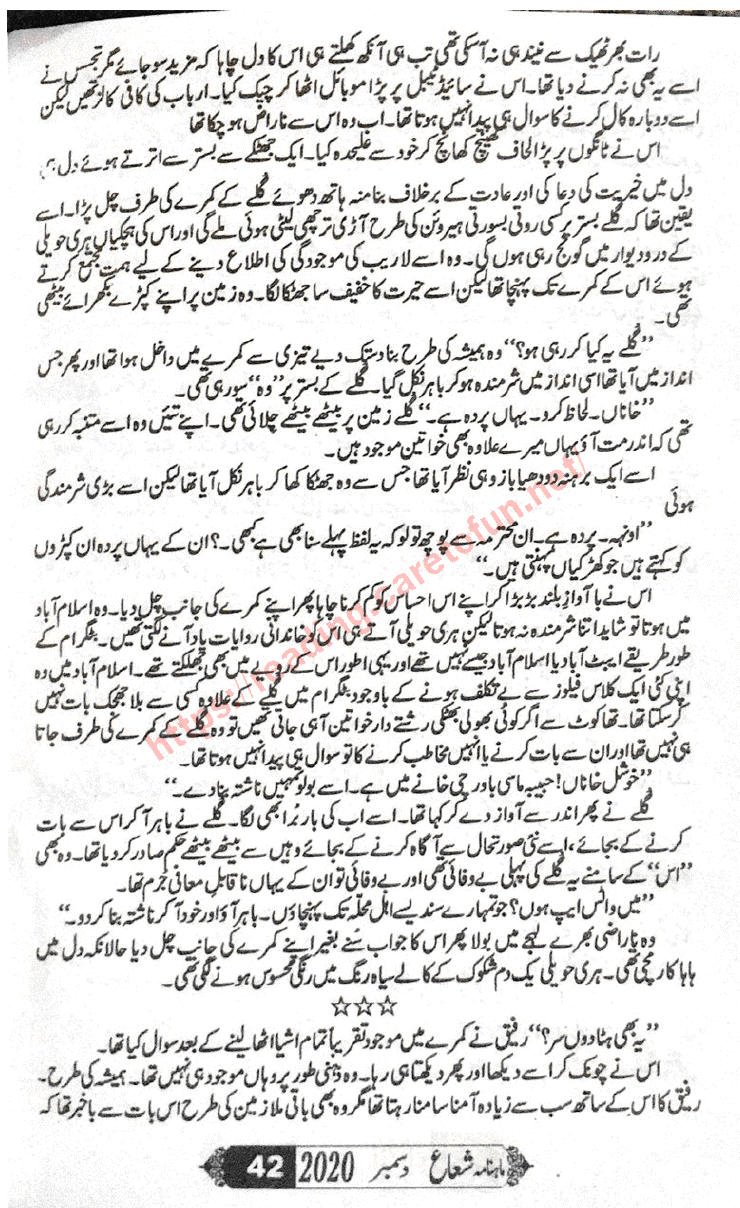 رات بھر ٹھیک سے نیند ہی نہ آسکی تھی تب ہی آنکھ کھلتے ہی اس کا دل چاہا کہ مزید سو جائے مگر تجسس نے
اسے یہ بھی نہ کرنے دیا تھا۔ اس نے سائیڈ ٹیبل پر پڑا موبائل اٹھا کر چیک کیا۔ ارباب کی کافی کالز تھیں لیکن
اسے دوبارہ کال کرنے کا سوال ہی پیدا نہیں ہوتا تھا۔ اب وہ اس سے ناراض ہو چکا تھا
اس نے ٹانگوں پر پڑا لحاف کھینچ کھانچ کر خود سے علیحدہ کیا۔ ایک جھٹکے سے بستر سے اترتے ہوئے دل ہی
دل میں خیریت کی دعا کی اور عادت کے برخلاف بنا منہ ہاتھ دھوئے گلے کے کمرے کی طرف چل پڑا۔ اسے
یقین تھا کہ گلے بستر پر کسی روتی بسورتی ہیروئن کی طرح آڑی ترچھی لیٹی ہوئی ملے گی اور اس کی ہچکیاں ہری حویلی
کے درودیوار میں گونج رہی ہوں گی۔ وہ اسے لاریب کی موجودگی کی اطلاع دینے کے لیے ہمت مجتمع کرتے
ہوئے اس کے کمرے تک پہنچا تھا لیکن اسے حیرت کا خفیف سا جھٹکا لگا۔ وہ زمین پر اپنے کپڑے بکھرائے بیٹھی
تھی۔
”گلے یہ کیا کر رہی ہو؟“ وہ ہمیشہ کی طرح بنا دستک دیے تیزی سے کمرے میں داخل ہوا تھا اور پھر جس
انداز میں آیا تھا اسی انداز میں شرمندہ ہو کر باہر نکل گیا۔ گلے کے بستر پر ”وہ“ سو رہی تھی۔
”خاناں۔ لحاظ کرو۔ یہاں پردہ ہے۔“ گلے زمین پر بیٹھے بیٹھے چلائی تھی۔ اپنے تئیں وہ اسے متنبہ کر رہی
تھی کہ اندر مت آؤ یہاں میرے علاوہ بھی خواتین موجود ہیں۔
اسے ایک برہنہ دودھیا بازو ہی نظر آیا تھا جس سے وہ جھٹکا کھا کر باہر نکل آیا تھا لیکن اسے بڑی شرمندگی
ہوئی
”اونہہ۔ پردہ ہے۔ ان محترمہ سے پوچھ تو لو کہ یہ لفظ پہلے سنا بھی ہے کبھی۔؟ ان کے یہاں پردہ ان کپڑوں
کو کہتے ہیں جو کھڑکیاں پہنتی ہیں۔“
اس نے باآواز بلند بڑبڑا کر اپنے اس احساس کو کم کرنا چاہا پھر اپنے کمرے کی جانب چل دیا۔ وہ اسلام آباد
میں ہوتا تو شاید اتنا شرمندہ نہ ہوتا لیکن ہری حویلی آتے ہی اس کو خاندانی روایات یاد آنے لگتی تھیں۔ بٹگرام کے
طور طریقے ایبٹ آباد یا اسلام آباد جیسے نہیں تھے اور یہی اطوار اس کے رویے میں بھی جھلکتے تھے۔ اسلام آباد میں وہ
اپنی کئی ایک کلاس فیلوز سے بے تکلف ہونے کے باوجود بٹگرام میں گلے کے علاوہ کسی سے بلا جھجک بات نہیں
کر سکتا تھا۔ تھا کوٹ سے اگر کوئی بھولی بھٹکی رشتے دار خواتین آ ہی جاتی تھیں تو وہ گلے کے کمرے کی طرف جاتا
ہی نہیں تھا اور ان سے بات کرنے یا انہیں مخاطب کرنے کا تو سوال ہی پیدا نہیں ہوتا تھا۔
”خوشل خاناں! حبیبہ ماسی باورچی خانے میں ہے۔ اسے بولو تمہیں ناشتہ بنا دے۔“
گلے نے پھر اندر سے آواز دے کر کہا تھا۔ اسے اب کی بار برا بھی لگا۔ گلے نے باہر آ کر اس سے بات
کرنے کے بجائے، اسے نئی صورتحال سے آگاہ کرنے کے بجائے وہیں سے بیٹھے بیٹھے حکم صادر کر دیا تھا۔ وہ بھی
”اس“ کے سامنے یہ گلے کی پہلی بے وفائی تھی اور بے وفائی تو ان کے یہاں ناقابل معافی جرم تھا۔
”میں واٹس ایپ ہوں؟ جو تمہارے سندیسے اہل محلہ تک پہنچاؤں۔ باہر آؤ اور خود آ کر ناشتہ بنا کر دو۔“
وہ ناراضی بھرے لہجے میں بولا پھر اس کا جواب سنے بغیر اپنے کمرے کی جانب چل دیا حالانکہ دل میں
ہاہاکار مچی تھی۔ ہری حویلی یک دم شکوک کے کالے سیاہ رنگ میں رنگی محسوس ہونے لگی تھی۔
☆☆☆
”یہ بھی ہٹا دوں سر؟“ رفیق نے کمرے میں موجود تقریباً تمام اشیا اٹھا لینے کے بعد سوال کیا تھا۔
اس نے چونک کر اسے دیکھا اور پھر دیکھتا ہی رہا۔ وہ ذہنی طور پر وہاں موجود ہی نہیں تھا۔ ہمیشہ کی طرح۔
رفیق کا اس کے ساتھ سب سے زیادہ آمنا سامنا رہتا تھا مگر وہ بھی باقی ملازمین کی طرح اس بات سے باخبر تھا کہ
https://reading.caretofun.net/
ماہنامہ شعاع دسمبر 2020 42